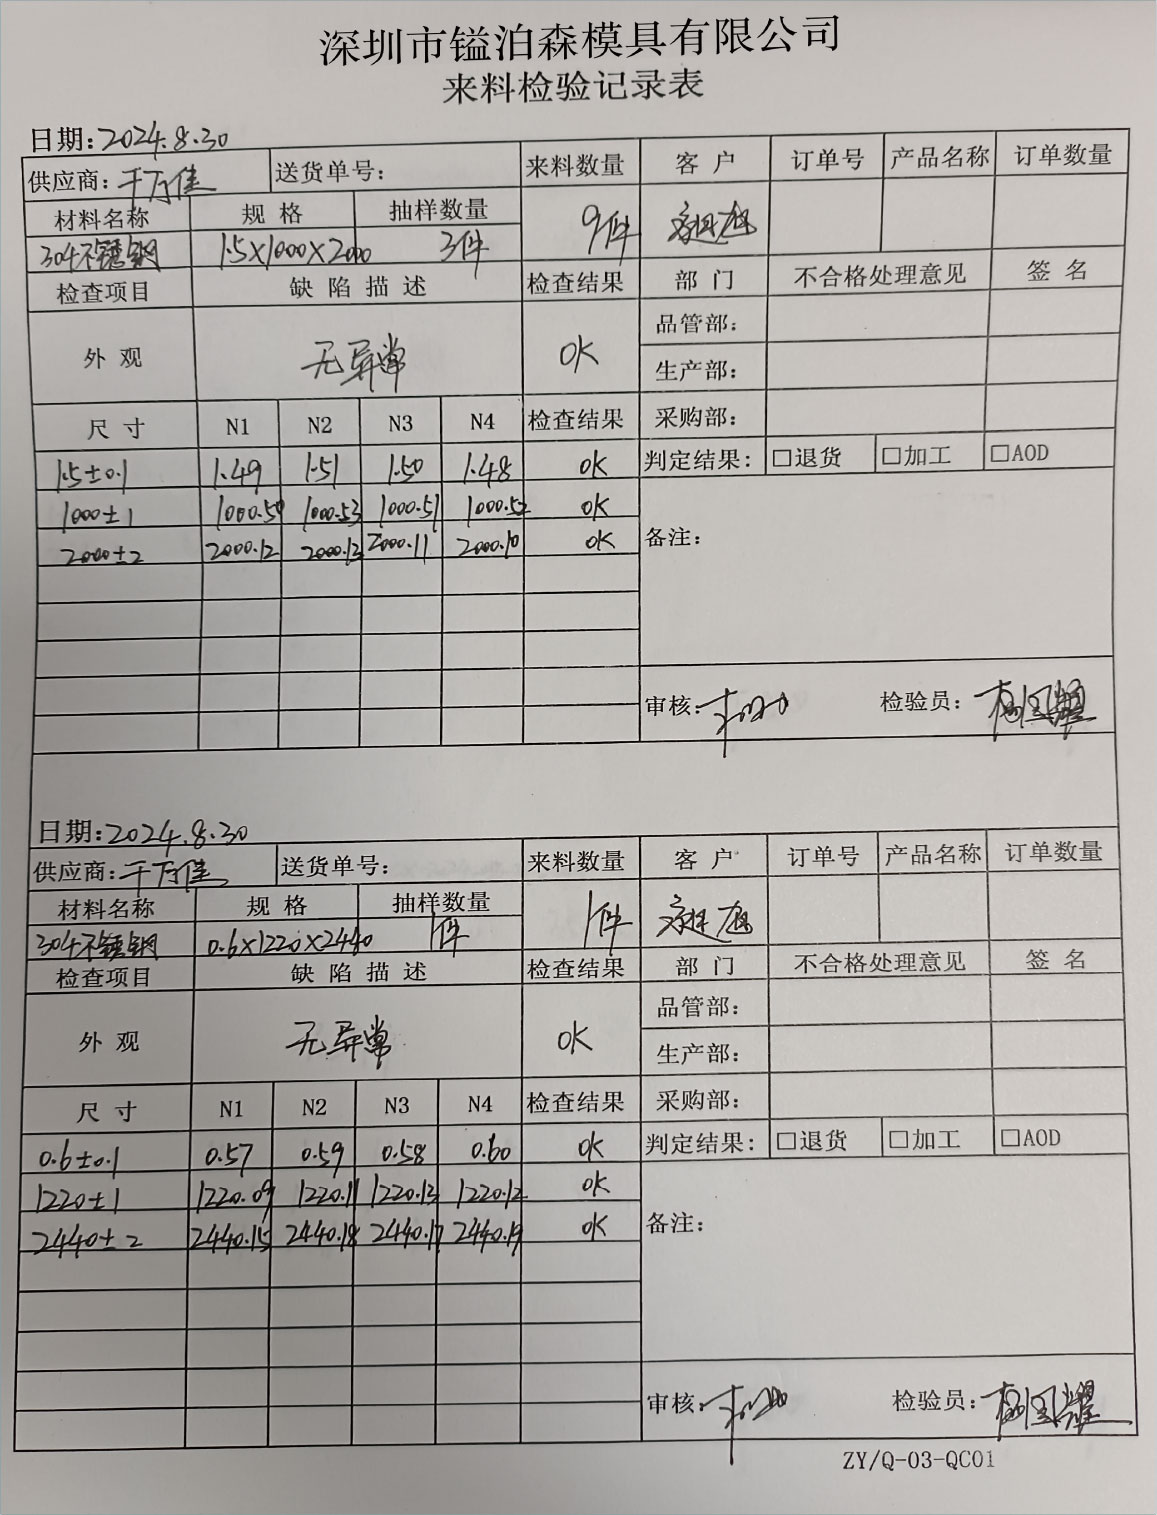 深圳市镒泊森模具有限公司
来料检验记录表
日期:2024.8.30
供应商:千万佳 送货单号: 来料数量 客户 订单号 产品名称 订单数量
材料名称 规格 抽样数量 9件
304不锈钢 1.5×1000×2000 3件
检查项目 缺陷描述 检查结果 部门 不合格处理意见 签名
外观 无异常 OK 品管部:
生产部:
尺寸 N1 N2 N3 N4 检查结果 采购部:
1.5±0.1 1.49 1.51 1.50 1.48 OK 判定结果: □退货 □加工 □AOD
1000±1 1000.50 1000.53 1000.51 1000.52 OK
2000±2 2000.12 2000.13 2000.11 2000.10 OK 备注:
审核: 检验员:
日期:2024.8.30
供应商:千万佳 送货单号: 来料数量 客户 订单号 产品名称 订单数量
材料名称 规格 抽样数量 1件
304不锈钢 0.6×1220×2440 1件
检查项目 缺陷描述 检查结果 部门 不合格处理意见 签名
外观 无异常 OK 品管部:
生产部:
尺寸 N1 N2 N3 N4 检查结果 采购部:
0.6±0.1 0.57 0.59 0.58 0.60 OK 判定结果: □退货 □加工 □AOD
1220±1 1220.09 1220.11 1220.13 1220.12 OK
2440±2 2440.15 2440.18 2440.17 2440.19 OK 备注:
审核: 检验员:
ZY/Q-03-QC01